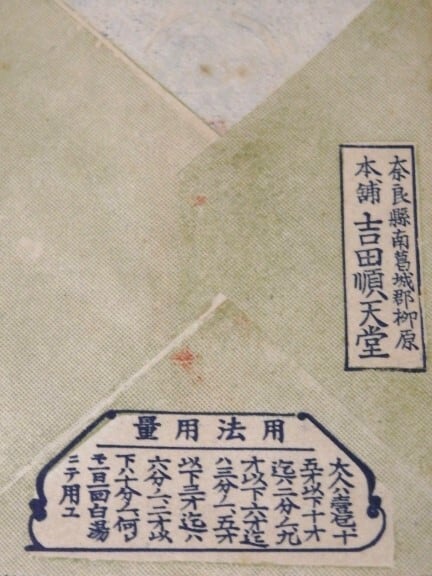 奈良縣南葛城郡柳原
本舗 吉田順天堂
用法用量
大人ハ壹包十
五才以下十才
迄ハ二分ノ一九
才以下六才迄
ハ三分ノ一五才
以下三才迄ハ
六分ノ一二才以
下ハ十分ノ一何レ
モ一日三回白湯
ニテ用ユ